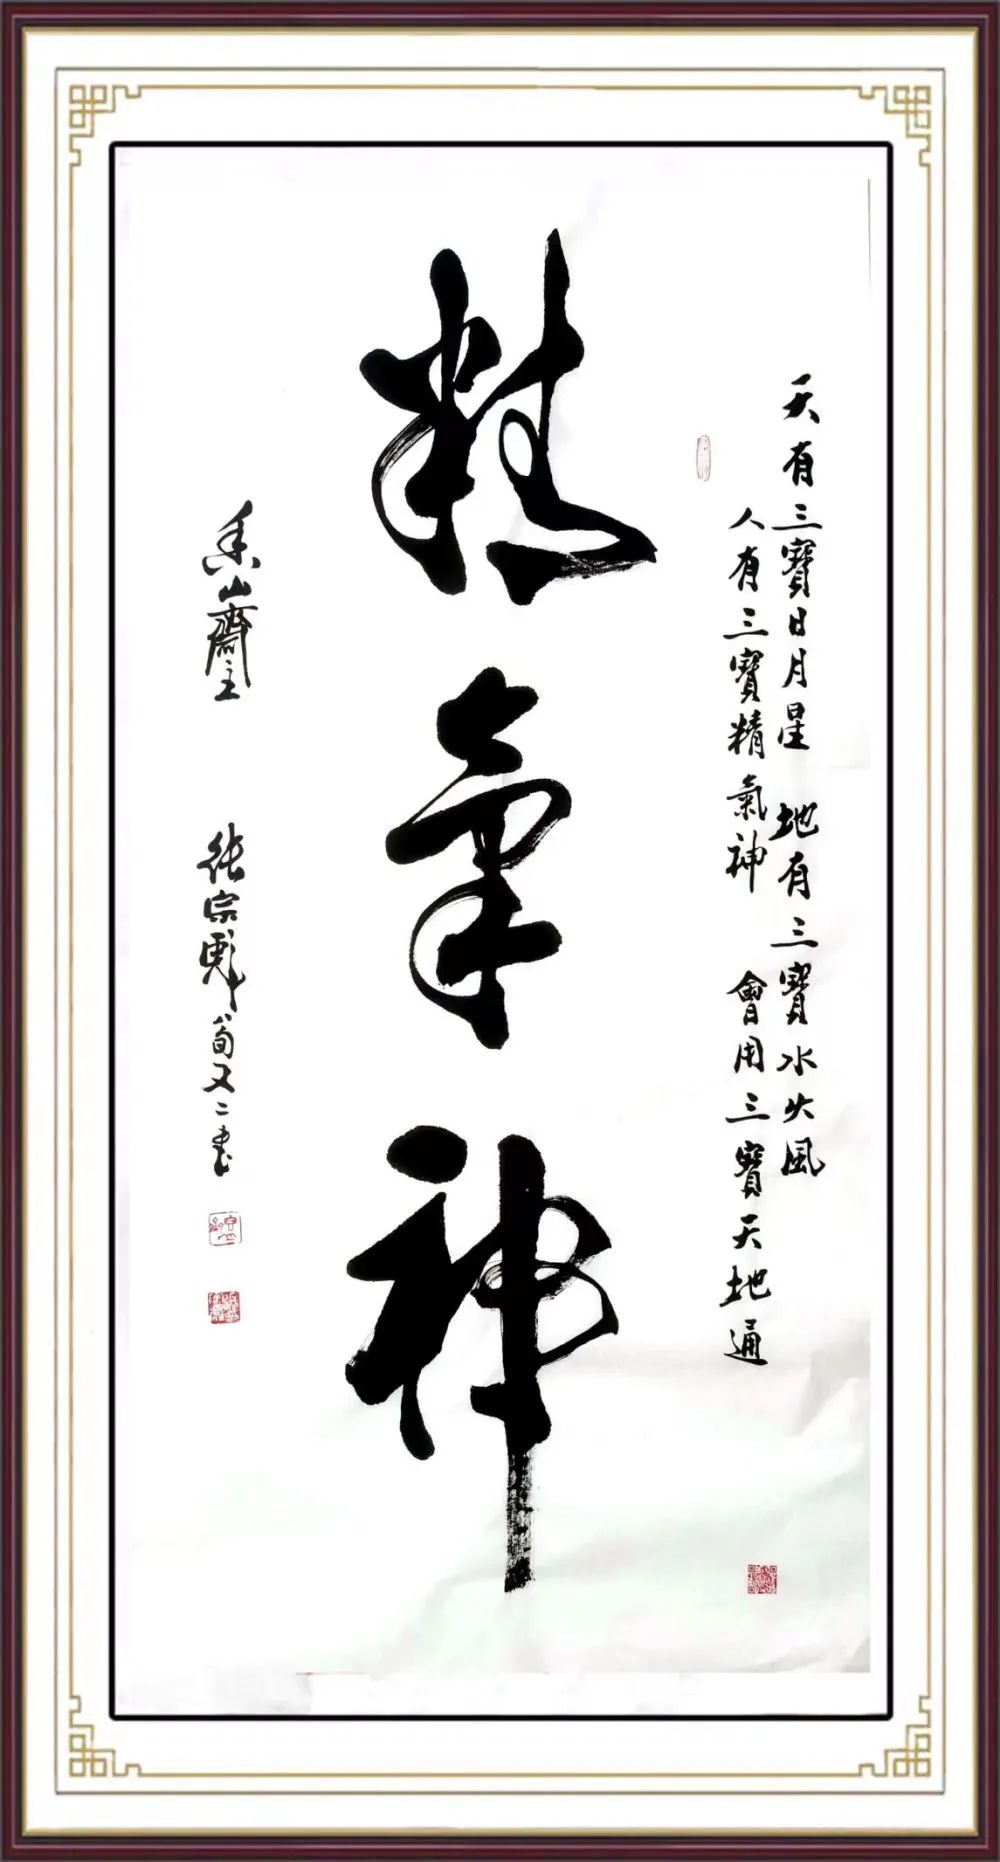 天有三寶日月星 地有三寶水火風
人有三寶精氣神 會用三寶天地通
精氣神
香山齋主 張宗彪八旬又二書